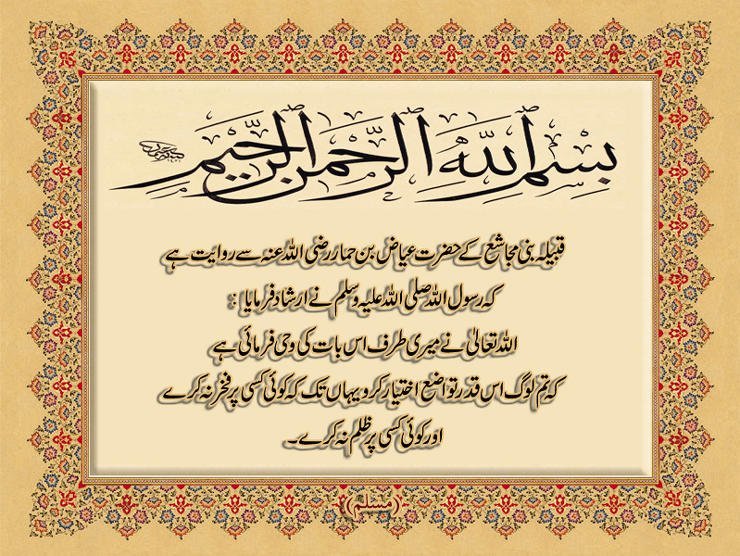 بسم الله الرحمن الرحيم
قبیلہ بنی مجاشع کے حضرت عیاض بن حمار رضی اللہ عنہ سے روایت ہے
کہ رسول اللہ صلی اللہ علیہ وسلم نے ارشاد فرمایا :
اللہ تعالیٰ نے میری طرف اس بات کی وحی فرمائی ہے
کہ تم لوگ اس قدر تواضع اختیار کرو یہاں تک کہ کوئی کسی پر فخر نہ کرے
اور کوئی کسی پر ظلم نہ کرے۔
((مسلم))